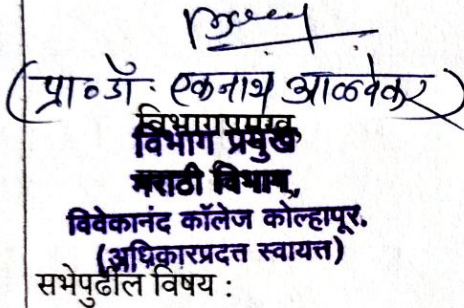 (प्रा०डॉ. एकनाथ आळवेकर)
विभागप्रमुख,
विभाग प्रमुख
मराठी विभाग,
विवेकानंद कॉलेज कोल्हापूर.
(अधिकारप्रदत्त स्वायत्त)
सभेपुढील विषय :